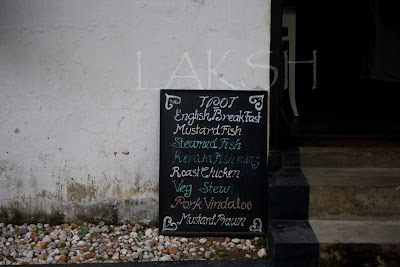 LAKSH
TPOT
English Breakfast
Mustard Fish
Steamed Fish
Kerala Fish
Roast Chicken
Veg Stew
Pork Vindaloo
Mustard Prawn